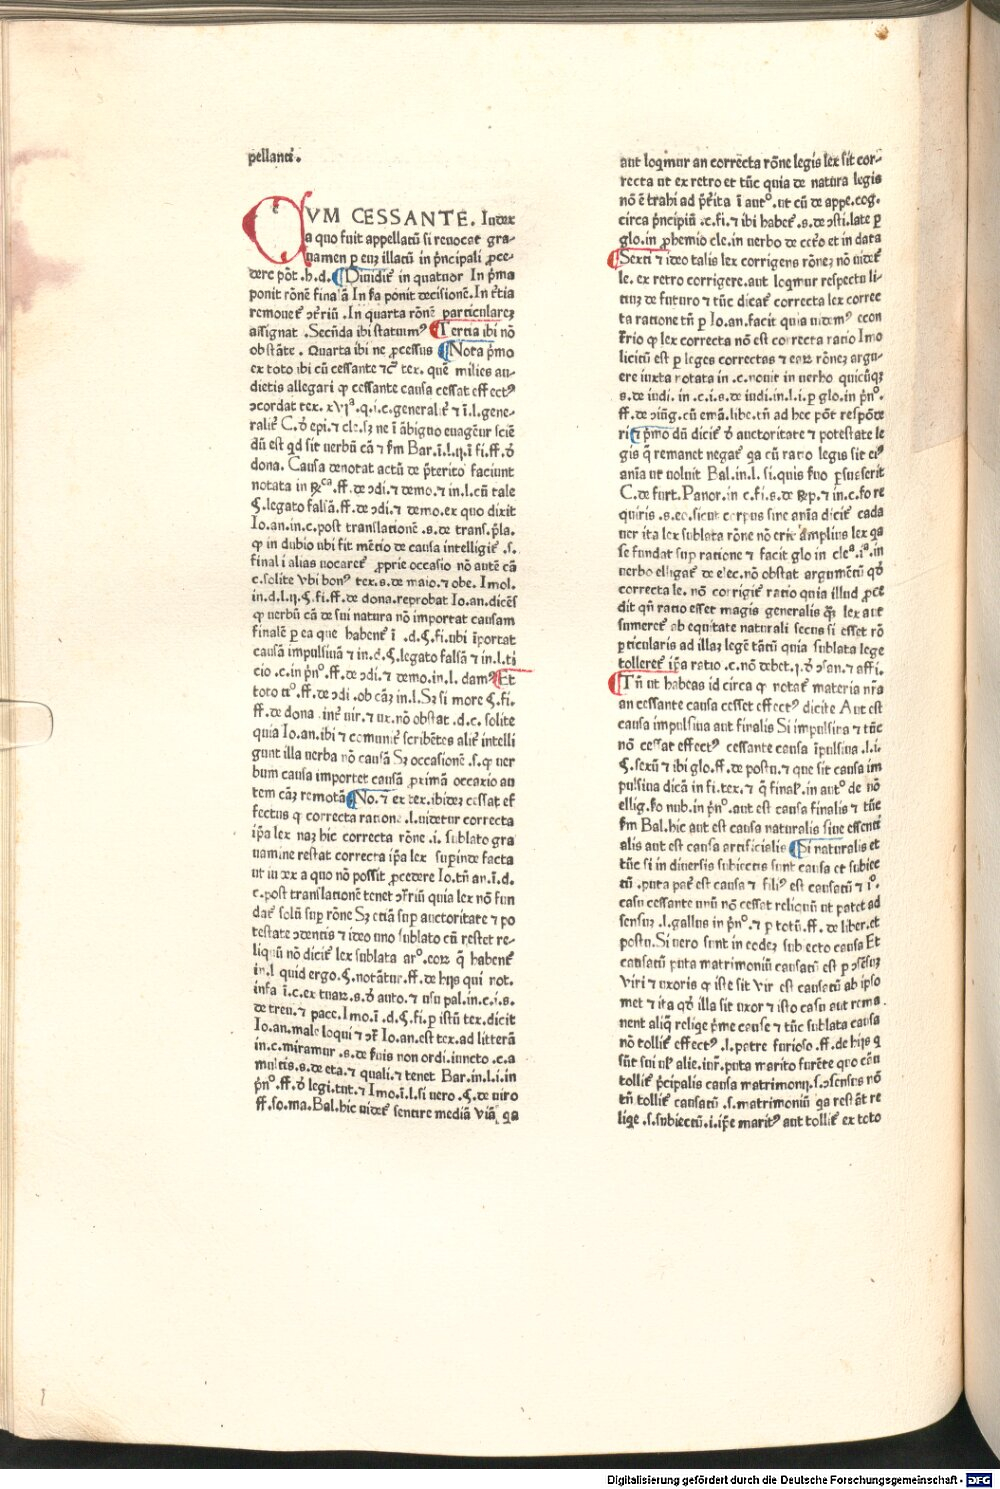 pellanẽ.
CVM CESSANTE. Iudex
a quo fuit appellatũ si reuocat gra-
uamen ꝑ euꝫ illatũ in pͥncipali ꝓce-
dere põt .h.d. Diuidit᷑ in quatuor In pͥma
ponit rõnẽ finalẽ In ẜa ponit decisionẽ. In t᷑tia
remouet᷑ ↄr̃riũ . In quarta rõnẽ particularez
assignat . Secũda ibi statuimꝰ Tertia ibi nõ
obstãte . Quarta ibi ne ꝓcessus Nota pͥmo
ex toto ibi cũ cessante ⁊c̃ tex. quẽ milies au-
dietis allegari ꝙ cessante causa cessat effectꝰ
ↄcordat tex. xvjª.q.i.c.generalit᷑ ⁊ ĩ.l.gene-
ralit᷑ C. õ epi. ⁊ cle. sꝫ ne ĩ ãbiguo euagẽur sciẽ
dũ est qd sit uerbũ cã ⁊ ẜm Bar.ĩ.l.ij.ĩ fi.ff.õ
dona. Causa denotat actũ de pͥterito faciunt
notata in ℞ca.ff.de ↄdi.⁊ demo.⁊ in.l.cũ tale
§.legato falsã.ff.de ↄdi.⁊ demo.ex quo dixit
Io.an.in.c.post translationẽ .s.de trans.p̃la.
ꝙ in dubio ubi fit mẽtio de causa intelligit᷑ .s.
final i alias uocaret᷑ ꝓprie occasio nõ autẽ cã
c.solite Vbi bonꝰ tex.s.de maio.⁊ obe. Imol.
in.d.l.ij.§.fi.ff.de dona.reprobat Io.an.dicẽs
ꝙ uerbũ cã de sui natura nõ importat causam
finalẽ ꝑ ea que habent᷑ ĩ .d.§.fi.ubi ĩportat
causã impulsiuã ⁊ in.d.§.legato falsã ⁊ in.l.ti
cio .c.in pͥnº.ff.de ↄdi.⁊ demo.in.l. damꝰ Et
toto tiº.ff.de ↄdi .ob cãꝫ in.l. Sꝫ si more §.fi.
ff.de dona .int᷑ uir.⁊ ux.nõ obstat .d.c. solite
quia Io.an.ibi ⁊ comunit᷑ scribẽtes alit᷑ intelli
gunt illa uerba nõ causã Sꝫ occasionẽ .s.ꝙ uer
bum causa importet causã ꝓximã occaxio au
tem cãꝫ remotã No.⁊ ex tex.ibideꝫ cessat ef
fectus ꝙ correcta ratione .l.uidetur correcta
ip̃a lex naꝫ hic correcta rõne .i. sublato gra
uamine restat correcta ip̃a lex superinde facta
ut iudex a quo nõ possit ꝓcedere Io.tñ an.ĩ.d.
c.post translationẽ tenet ↄr̃riũ quia lex nõ fun
dat᷑ solũ sup rõne Sꝫ etiã sup auctoritate ⁊ po
testate ↄdentis ⁊ ideo uno sublato cũ restet re-
liquũ nõ dicit᷑ lex sublata arº.eoꝝ q̃ habent᷑
in.l quid ergo.§.notãtur.ff.de hijs qui not.
infa ĩ.c.ex tuaꝝ.s.õ auto.⁊ usu pal.in.c.i.s.
de treu.⁊ pace. Imo.ĩ .d.§.fi.ꝑ istũ tex.dicit
Io.an.male loqui ⁊ ↄr̃ Io.an.est tex.ad litterã
in.c.miramur .s.de ẜuis non ordi.iuncto .c.a
multis.s.de eta.⁊ quali.⁊ tenet Bar.in.l.i.in
pͥnº.ff.õ legi.tut.⁊ Imo.ĩ.l.si uero .§.de uiro
ff.so.ma.Bal.hic uidet᷑ sentire mediã viã qa
aut loqĩmur an correcta rõne legis lex sit cor-
recta ut ex retro et tũc quia de natura legis
nõ ẽ trahi ad p̃t᷑ita ĩ autº.ut cũ de appe.cog.
circa pͥncipiũ .c.fi.⁊ ibi habet᷑.s.de ↄsti.late ꝑ
glo.in ꝓhemio cle.in uerbo de cet᷑o et in data
Sexti ⁊ ideo talis lex corrigens rõneꝫ nõ uidet᷑
le. ex retro corrigere.aut loqmur respectu li-
tiuꝫ de futuro ⁊ tũc dicat᷑ correcta lex correc
ta ratione tñ ꝑ Io.an.facit quia uidemꝰ econ
t᷑rio ꝙ lex correcta nõ est correcta ratio Imo
licitũ est ꝑ leges correctas ⁊ eaꝝ rõneꝫ argu-
ere iuxta notata in .c.nouit in uerbo quicũqꝫ
s.de iudi. in .c.i.s.de iudi.in.l.i.ꝑ glo.in pͥnº.
ff.de ↄiũg.cũ emã.libe.tñ ad hec põt respõde
ri ⁊ pͥmo dũ dicit᷑ õ auctoritate ⁊ potestate le
gis q̃ remanet negat᷑ qa cũ ratio legis sit eiꝰ
anĩa ut uoluit Bal.in.l. si.quis ẜuo ꝑsuaserit
C.de furt.Panor.in c.fi.s.de ℞p.⁊ in.c.fo re
quiris .s.eo.sicut corpus sine anĩa dicit᷑ cada
uer ita lex sublata rõne nõ erit amplius lex qa
se fundat sup ratione ⁊ facit glo in cleª.iª.in
uerbo elligat᷑ de elec.nõ obstat argumẽtũ qõ
correcta le. nõ corrigit᷑ ratio quia illud ꝓce
dit qñ ratio esset magis generalis q̃ꝫ lex aut
sumeret᷑ ab equitate naturali secus si esset rõ
ꝑticularis ad illaꝫ legẽ tãtũ quia sublata lege
tolleret᷑ ip̃a ratio .c.nõ debet.ij.õ ↄsan.⁊ affi.
Tñ ut habeas id circa ꝙ notat᷑ materia nr̃a
an cessante causa cesset effectꝰ dicite Aut est
causa impulsiua aut finalis Si impulsiua ⁊ tũc
nõ cessat effectꝰ cessante causa ĩpulsiua .l.i.
§.sexũ ⁊ ibi glo.ff.de postu.⁊ que sit causa im
pulsiua dicã in fi.tex.⁊ q̃ final᷑.in autº de nõ
ellig.ẜo nub.in pͥnº.aut est causa finalis ⁊ tũc
ẜm Bal.hic aut est causa naturalis siue essenti
alis aut est causa artificialis Si naturalis et
tũc si in diuersis subiectis sunt causa et subiec
tũ .puta pat᷑ est causa ⁊ filiꝰ est causatũ ⁊ iº.
casu cessante unũ nõ cesset reliquũ ut patet ad
sensuꝫ .l.gallus in pͥnº.⁊ ꝑ totũ.ff. de liber.et
postu.Si uero sunt in eodeꝫ subiecto causa Et
causatũ puta matrimoniũ causatũ est ꝑ ↄsẽsuꝫ
viri ⁊ uxoris ꝙ iste sit Vir est causatũ ab ipso
met ⁊ ita qõ illa sit uxor ⁊ isto casu aut rema
nent aliq̃ relige pͥme cause ⁊ tũc sublata causa
nõ tollit᷑ effectꝰ .l.patre furioso .ff.de hijs q
sũt sui ul᷑ alie.iur̃.puta marito furẽte quo cãu
tollit᷑ pͥcipalis causa matrimonij.s.ↄsensus nõ
tñ tollit᷑ causatũ .s.matrimoniũ qa restãt re
lige .s.subiectũ.i.ip̃e maritꝰ aut tollit᷑ ex toto
Digitalisierung gefördert durch die Deutsche Forschungsgemeinschaft - DFG